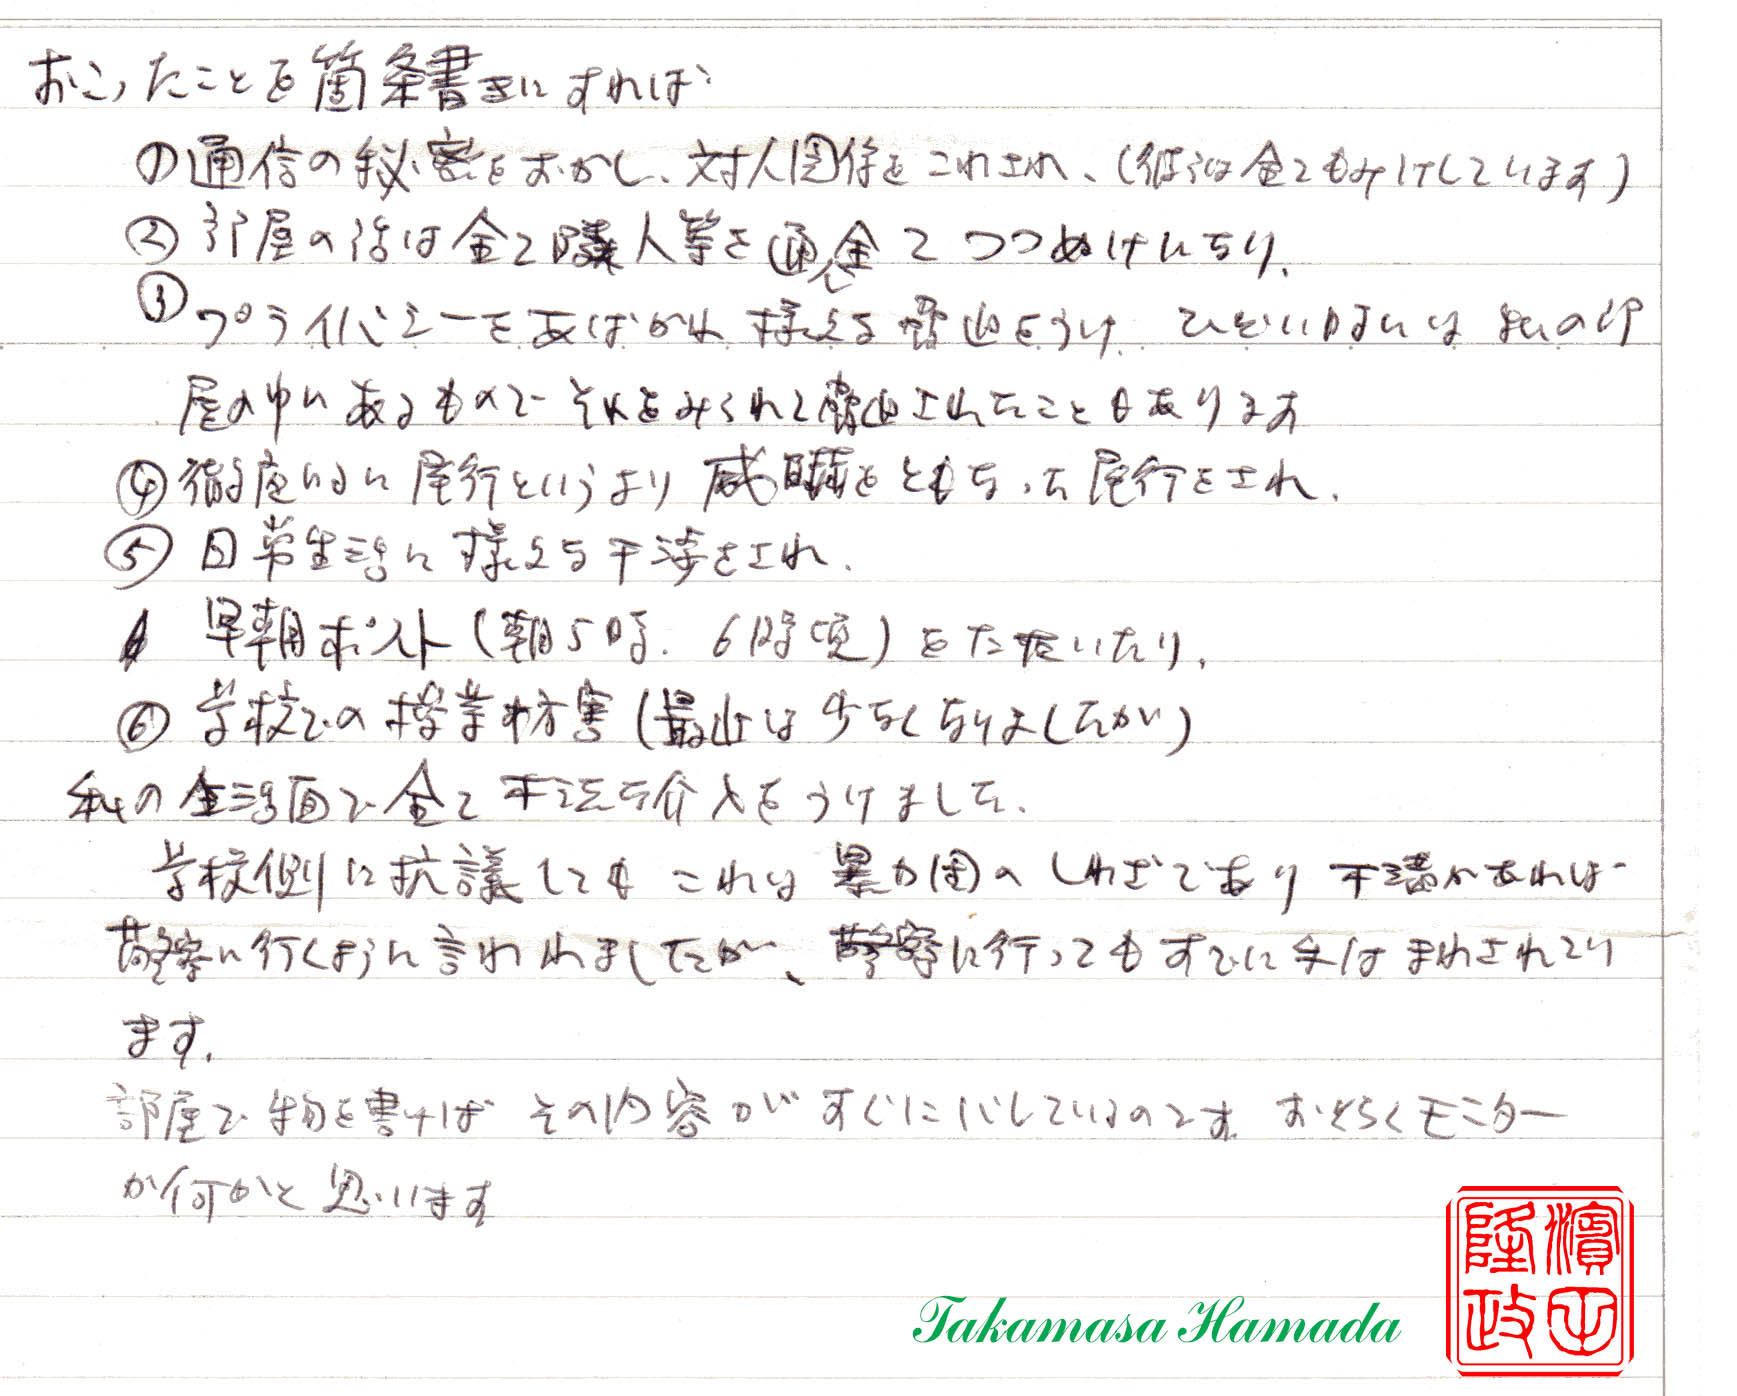 おこったことを箇条書きにすれば
①通信の秘密をおかし、対人関係をこわされ、(彼らは全てもみけしています)
②部屋の話は全て隣人等を通して全てつつぬけになり、
③プライバシーをあばかれ様々な脅迫をうけ ひどい時には私の部
屋の中にあるもので それをみられて脅迫されたこともあります
④徹底的に尾行というより威嚇をともなった尾行をされ、
⑤日常生活に様々な干渉をされ、
早朝ポスト(朝5時、6時頃)をたたいたり、
⑥学校での授業妨害(最近は少なくなりましたが)
私の生活面で全て不法な介入をうけました。
学校側に抗議しても これは暴力団のしわざであり 不満があれば
警察に行くように言われましたが、警察に行ってもすでに手はまわされており
ます。
部屋で物を書けば その内容が すぐにバレているのです。おそらくモニター
か何かと思います
Takamasa Hamada
濱田
隆政